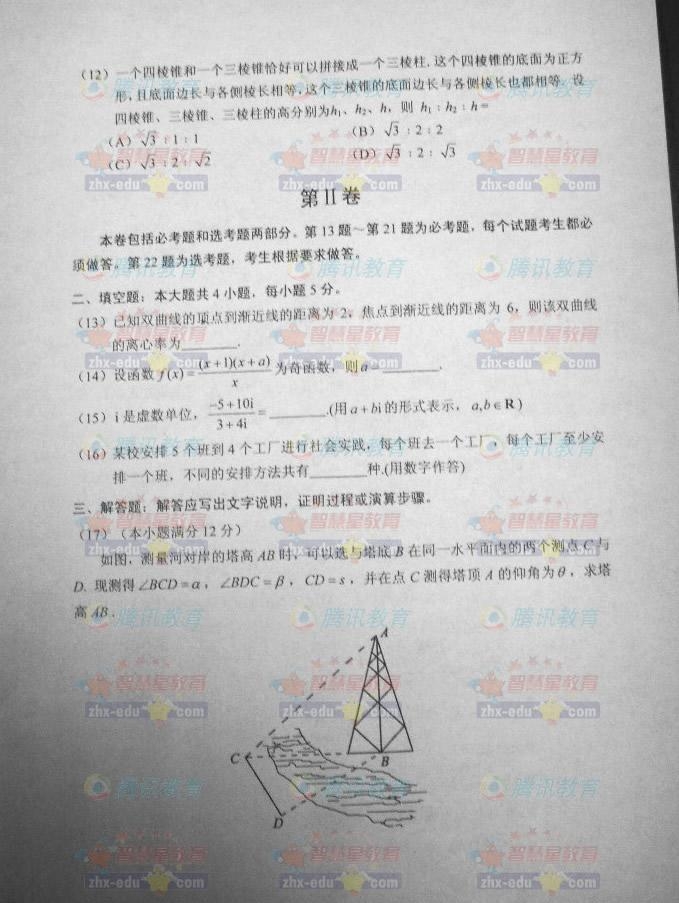 (12) 一个四棱锥和一个三棱锥恰好可以拼接成一个三棱柱.这个四棱锥的底面为正方
形,且底面边长与各侧棱长相等,这个三棱锥的底面边长与各侧棱长也都相等.设
四棱锥、三棱锥、三棱柱的高分别为h₁、h₂、h,则 h₁:h₂:h=
(A) √3:1:1
(B) √3:2:2
(C) √3:2:√2
(D) √3:2:√3
第Ⅱ卷
本卷包括必考题和选考题两部分。第13题~第21题为必考题,每个试题考生都必
须做答。第22题为选考题,考生根据要求做答。
二、填空题:本大题共4小题,每小题5分。
(13) 已知双曲线的顶点到渐近线的距离为2,焦点到渐近线的距离为6,则该双曲线
的离心率为______.
(14) 设函数 f(x)=(x+1)(x+a)/x 为奇函数,则a=______.
(15) i是虚数单位,(-5+10i)/(3+4i)=______.(用a+bi的形式表示,a,b∈R)
(16) 某校安排5个班到4个工厂进行社会实践,每个班去一个工厂,每个工厂至少安
排一个班,不同的安排方法共有______种.(用数字作答)
三、解答题:解答应写出文字说明,证明过程或演算步骤。
(17)(本小题满分12分)
如图,测量河对岸的塔高AB时,可以选与塔底B在同一水平面内的两个测点C与
D.现测得∠BCD=α,∠BDC=β,CD=s,并在点C测得塔顶A的仰角为θ,求塔
高AB.
A
C
B
D
智慧星教育
zhx-edu.com
腾讯教育